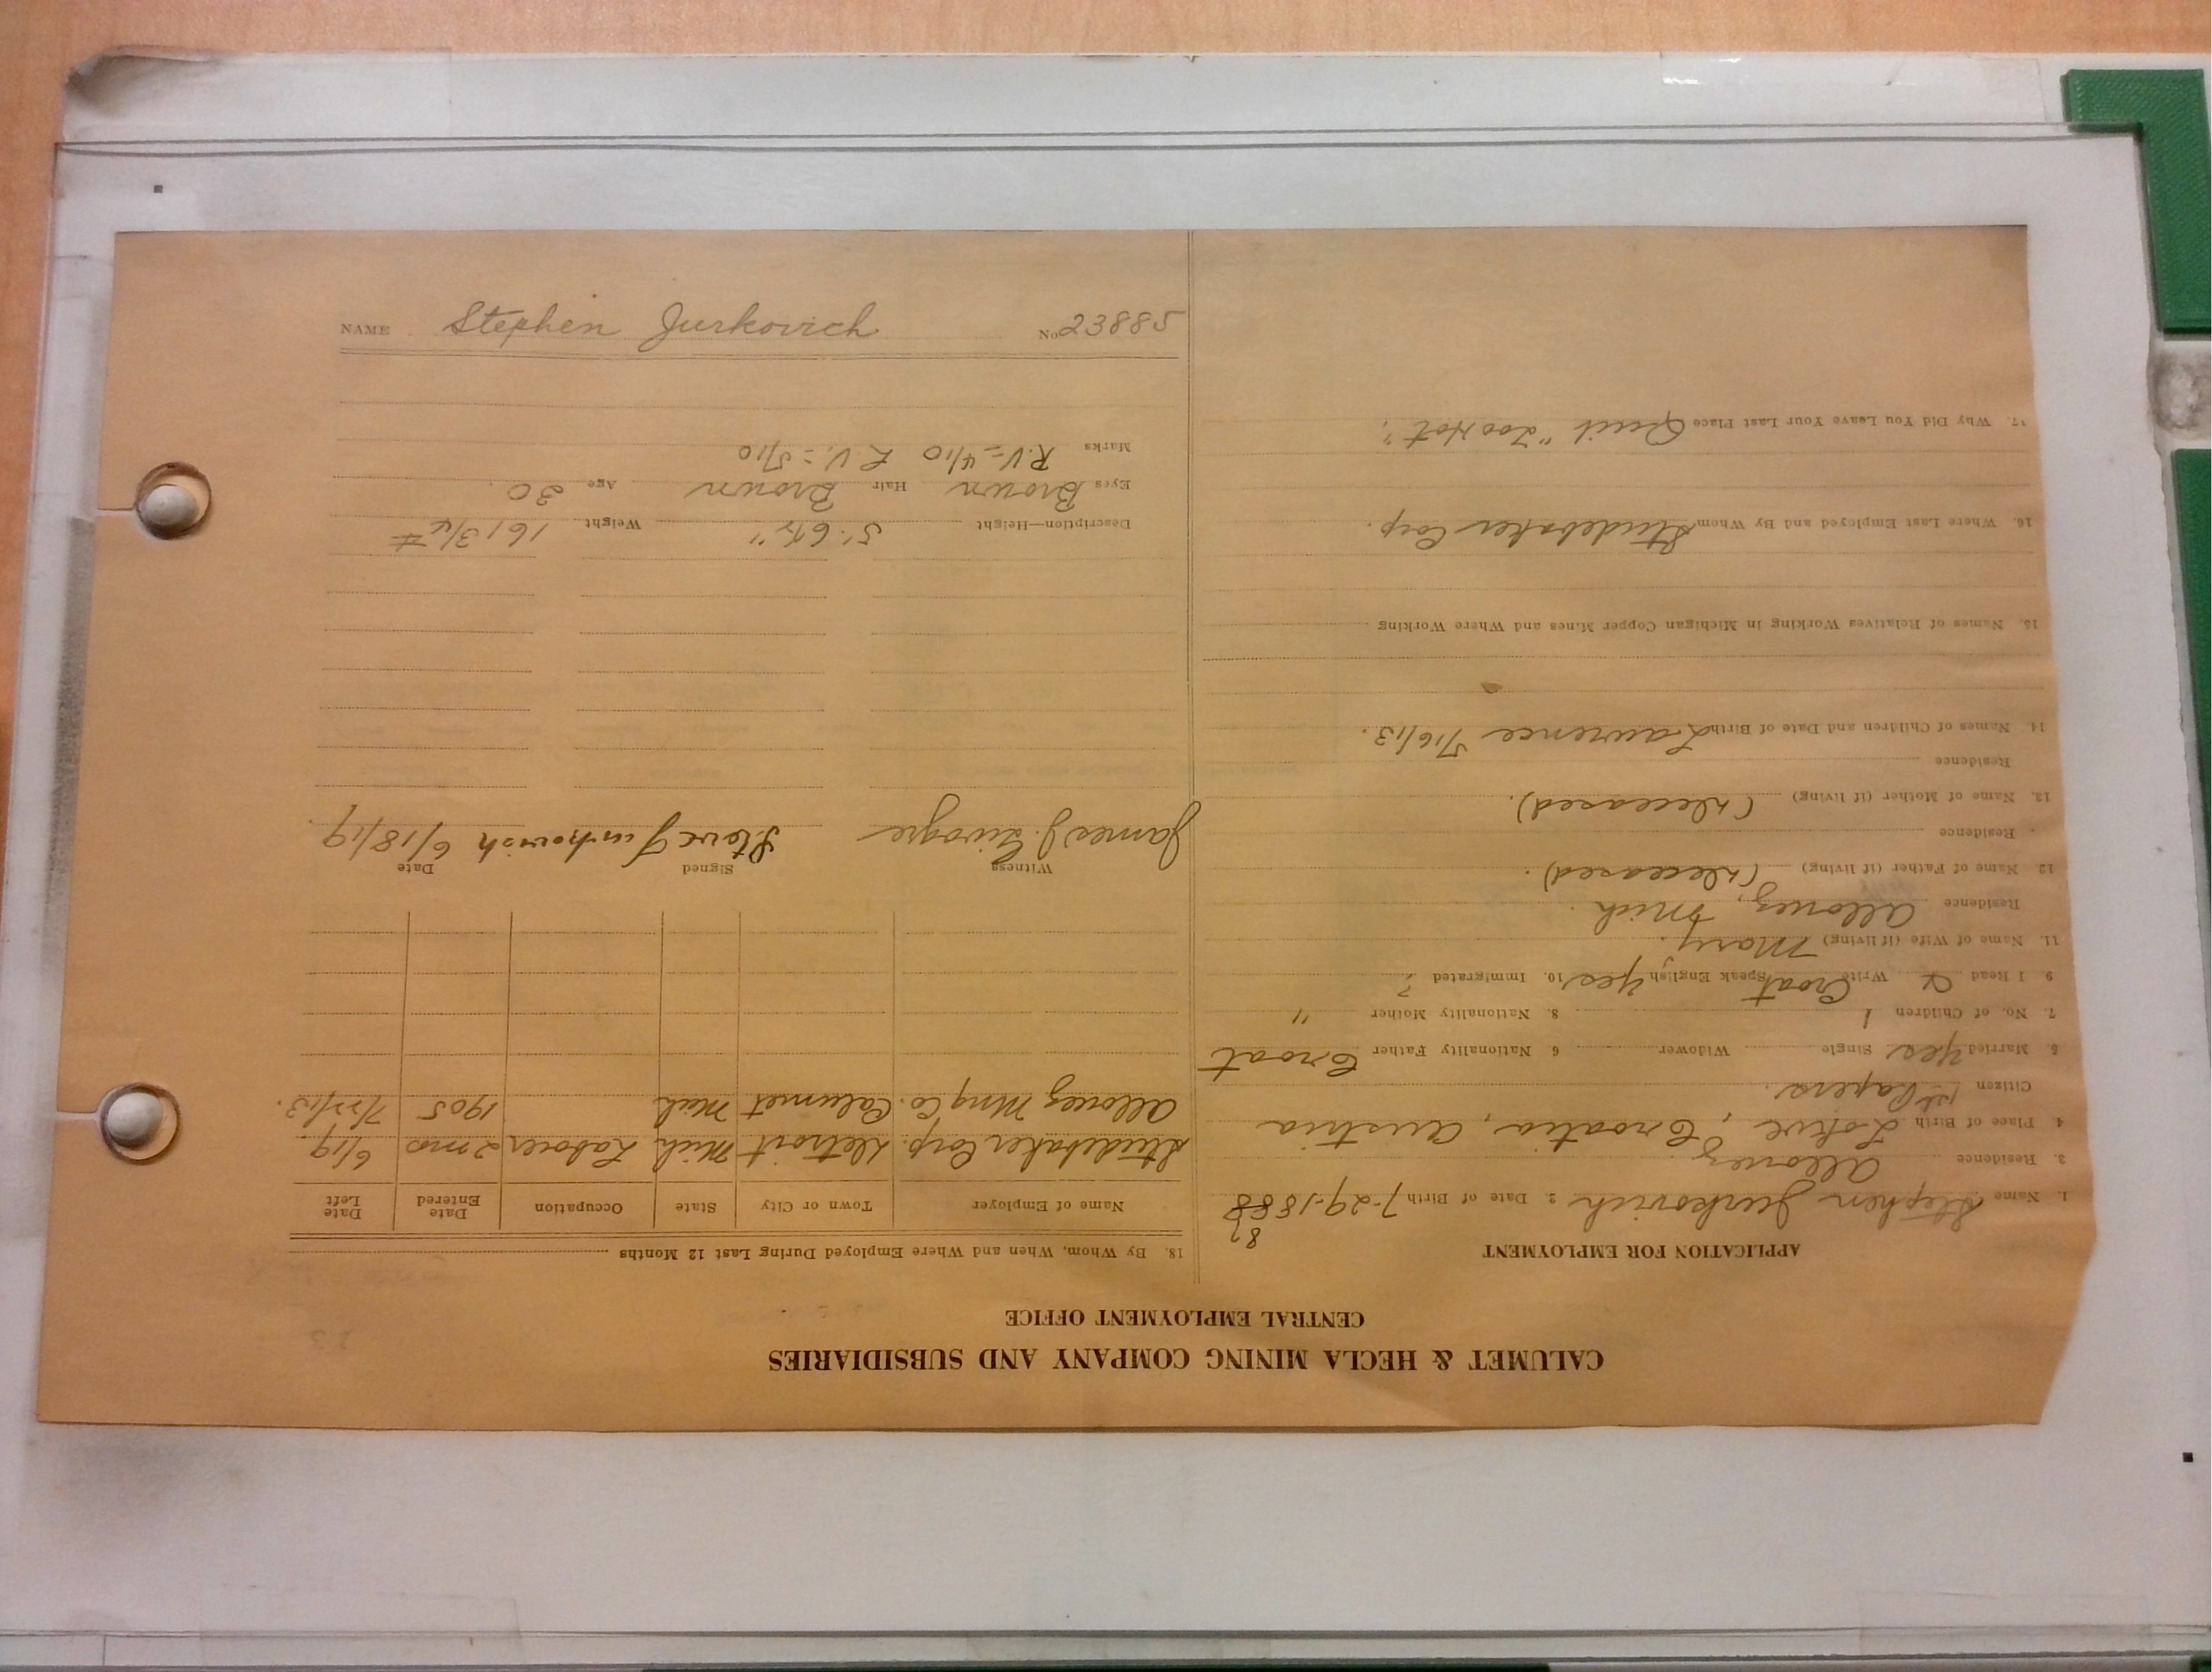 CALUMET & HECLA MINING COMPANY AND SUBSIDIARIES
CENTRAL EMPLOYMENT OFFICE
APPLICATION FOR EMPLOYMENT
87
1. Name Stephen Jurkovich 2. Date of Birth 7-29-1888
3. Residence Allouez
4. Place of Birth Lokve, Croatia, Austria
Citizen 1st Papers.
5. Married Yes Single Widower 6. Nationality Father Croat
7. No. of Children 1 8. Nationality Mother "
9 I Read & Write Croat Speak English Yes 10. Immigrated ?
11. Name of Wife (if living) Mary.
Residence Allouez, Mich.
12. Name of Father (if living) (Deceased).
Residence
13. Name of Mother (if living) (Deceased).
Residence
14. Names of Children and Date of Birth Lawrence 5/16/13.
15. Names of Relatives Working in Michigan Copper Mines and Where Working
16. Where Last Employed and By Whom Studebaker Corp.
17. Why Did You Leave Your Last Place Quit "Too Hot".
18. By Whom, When and Where Employed During Last 12 Months
Name of Employer Town or City State Occupation Date Entered Date Left
Studebaker Corp. Detroit Mich Laborer 2 mo 6/19.
Allouez Mng Co. Calumet Mich 1905 7/22/13.
Witness Signed Date
James J. Steve Jurkovich 6/18/19.
Description—Height 5'. 6½" Weight 161 3/4 #
Eyes Brown Hair Brown Age 30.
Marks R.V=4/10 L.V.=5/10
NAME Stephen Jurkovich No. 23885